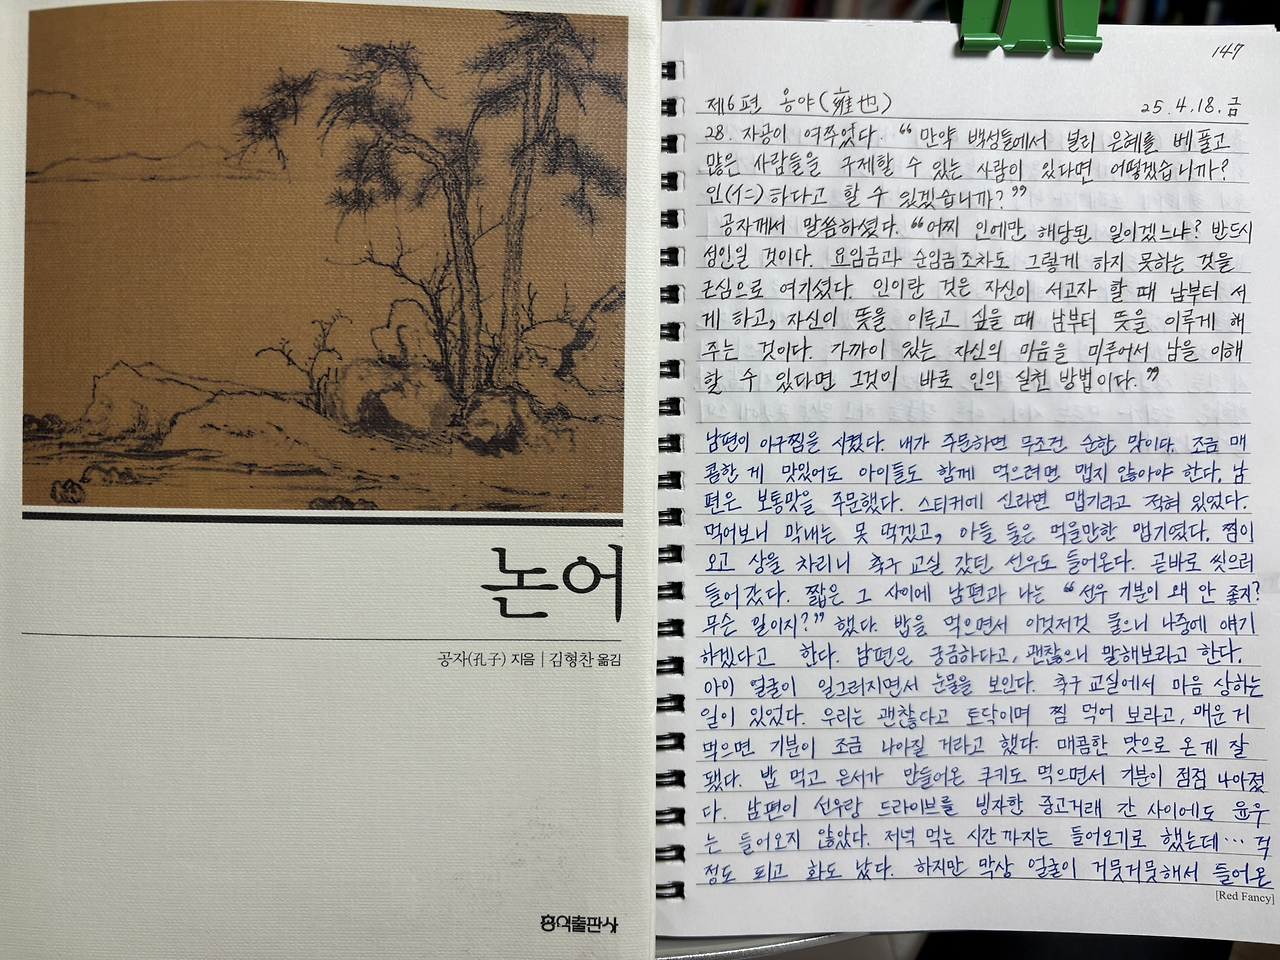 논어
공자(孔子) 지음 | 김형찬 옮김
홍익출판사
147
제6편 옹야(雍也) 25.4.18.금
28. 자공이 여쭈었다. “만약 백성들에서 널리 은혜를 베풀고
많은 사람들을 구제할 수 있는 사람이 있다면 어떻겠습니까?
인(仁)하다고 할 수 있겠습니까?”
공자께서 말씀하셨다. “어찌 인에만 해당된 일이겠느냐? 반드시
성인일 것이다. 요임금과 순임금조차도 그렇게 하지 못하는 것을
근심으로 여기셨다. 인이란 것은 자신이 서고자 할 때 남부터 서
게 하고, 자신이 뜻을 이루고 싶을 때 남부터 뜻을 이루게 해
주는 것이다. 가까이 있는 자신의 마음을 미루어서 남을 이해
할 수 있다면 그것이 바로 인의 실천 방법이다.”
남편이 아구찜을 시켰다. 내가 주문하면 무조건 순한 맛이다. 조금 매
콤한 게 맛있어도 아이들도 함께 먹으려면 맵지 않아야 한다. 남
편은 보통맛을 주문했다. 스티커에 신라면 맵기라고 적혀 있었다.
먹어보니 막내는 못 먹겠고, 아들 둘은 먹을만한 맵기였다. 찜이
오고 상을 차리니 축구 교실 갔던 선우도 들어온다. 곧바로 씻으러
들어갔다. 짧은 그 사이에 남편과 나는 “선우 기분이 왜 안 좋지?
무슨 일이지?” 했다. 밥을 먹으면서 이것저것 물으니 나중에 얘기
하겠다고 한다. 남편은 궁금하다고, 괜찮으니 말해보라고 한다.
아이 얼굴이 일그러지면서 눈물을 보인다. 축구 교실에서 마음 상하는
일이 있었다. 우리는 괜찮다고 토닥이며 찜 먹어 보라고, 매운 거
먹으면 기분이 조금 나아질 거라고 했다. 매콤한 맛으로 온 게 잘
됐다. 밥 먹고 은서가 만들어온 쿠키도 먹으면서 기분이 점점 나아졌
다. 남편이 선우랑 드라이브를 빙자한 중고거래 간 사이에도 윤우
는 들어오지 않았다. 저녁 먹는 시간까지는 들어오기로 했는데… 걱
정도 되고 화도 났다. 하지만 막상 얼굴이 거뭇거뭇해서 들어온
[Red Fancy]